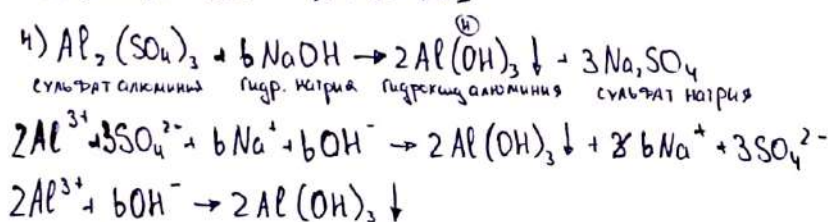 4) Al₂(SO₄)₃ + 6NaOH → 2Al(OH)₃↓ + 3Na₂SO₄
сульфат алюминия гидр. натрия гидроксид алюминия сульфат натрия
2Al³⁺+3SO₄²⁻ + 6Na⁺ + 6OH⁻ → 2Al(OH)₃↓ + 6Na⁺ + 3SO₄²⁻
2Al³⁺ + 6OH⁻ → 2Al(OH)₃↓